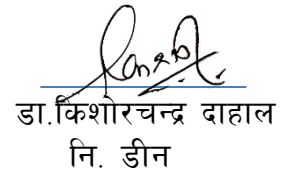 डा.किशोरचन्द्र दाहाल
नि. डीन